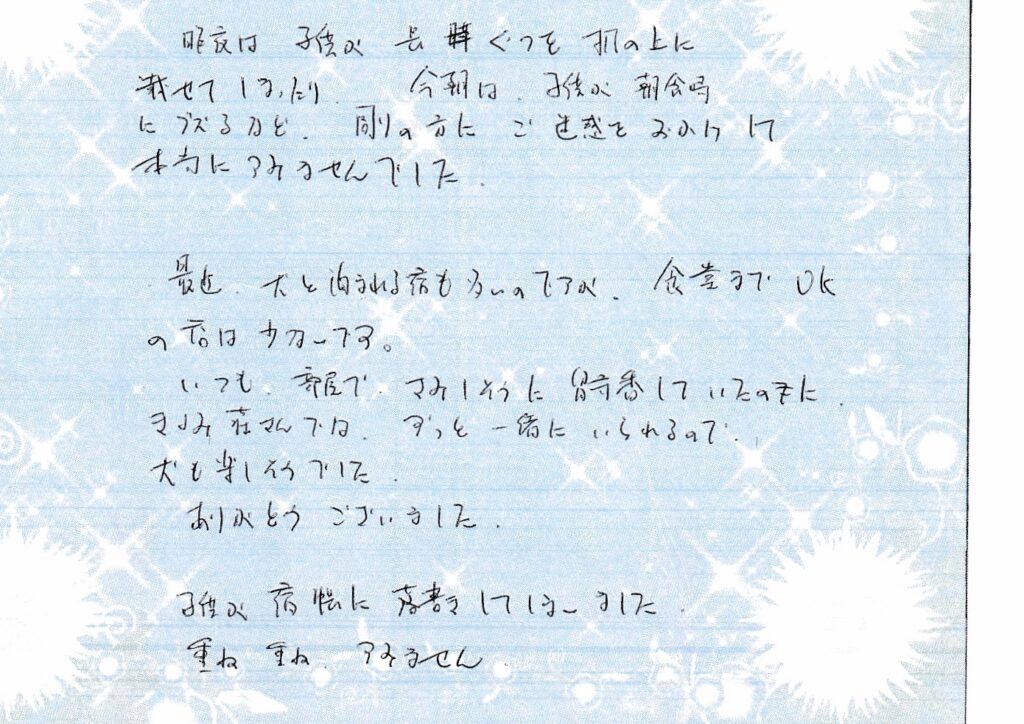 昨夜は 子供が 長ぐつを 机の上に
載せてしまったり、 今朝は、子供が 朝食時
にグズるなど、 周りの方に ご迷惑を おかけして
本当にすみませんでした。
最近、犬と泊まれる宿も多いのですが、食堂まで OK
の宿は 少数です。
いつも、部屋で、さみしそうに 留守番して いたのに、
きよみ荘さんでは、ずっと 一緒に いられるので、
犬も 楽しそうでした。
ありがとう ございました。
子供が 宿帳に 落書きしてしまいました。
重ね 重ね、すみません。